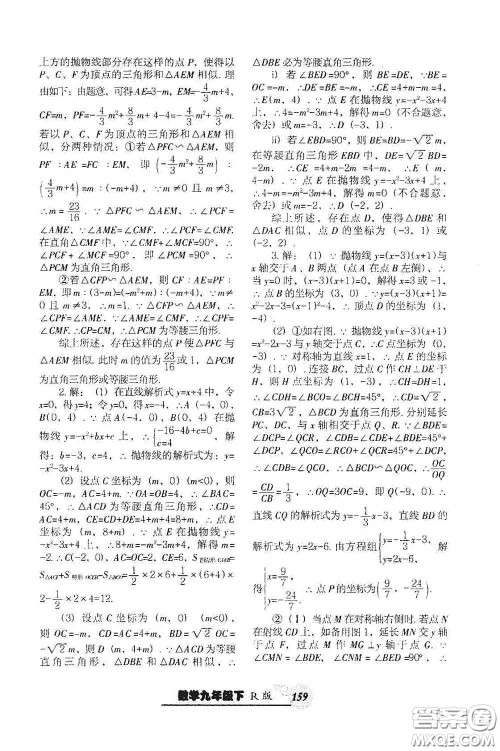 上方的抛物线部分存在这样的点 P，使得以
P、C、F 为顶点的三角形和△AEM 相似. 理
由如下：由题意，可得AE=3-m，EM=-4/3m+4，
CF=m，PF=-4/3m²+8/3m+4-4=-4/3m²+8/3m.
若以 P、C、F 为顶点的三角形和△AEM 相
似，分两种情况：①若△PFC∽△AEM，则
PF∶AE=FC∶EM，即(-4/3m²+8/3m)∶
(-4/3m+4)=m∶(-m+4)，∵m≠0且 m≠3，
∴m=23/16. ∵△PFC∽△AEM，∴∠PCF=
∠AME. ∵∠AME=∠CMF，∴∠PCF=∠CMF.
在直角△CMF 中，∵∠CMF+∠MCF=90°，∴
∠PCF+∠MCF=90°，即∠PCM=90°，∴
△PCM 为直角三角形.
②若△CFP∽△AEM，则 CF∶AE=PF∶
EM，
且 m≠3，∴m=1. ∵△CFP∽△AEM，∴
∠CPF=∠AME. ∵∠AME=∠CMF，∴∠CPF=
∠CMF. ∴CP=CM，∴△PCM 为等腰三角形.
综上所述，存在这样的点 P 使△PFC 与
△AEM 相似. 此时 m 的值为23/16或 1，△PCM
为直角三角形或等腰三角形.
2.解：(1) 在直线解析式 y=x+4 中，令
x=0，得 y=4；令 y=0，得 x=-4，∴A (-4，0)，
B(0，4). ∵点 A(-4，0)，B(0，4) 在抛
物线 y=-x²+bx+c 上，∴{-16-4b+c=0，c=4
得：b=-3，c=4，∴抛物线的解析式为：y=
-x²-3x+4.
(2) 设点 C 坐标为 (m，0)(m<0)，则
OC=-m，AC=4+m. ∵OA=OB=4，∴∠BAC=
45°，∴△ACD 为等腰直角三角形，∴CD=
AC=4+m，∴CE=CD+DE=4+m+4=8+m，∴点 E
坐标为 (m，8+m). ∵点 E 在抛物线 y=
-x²-3x+4 上，∴8+m=-m²-3m+4，解得 m=
-2. ∴C(-2，0)，AC=OC=2，CE=6，
1/2×2×6+1/2(6+4)×
2-1/2×2×4=12.
(3) 设点 C 坐标为 (m，0) (m<0)，
则 OC=-m，CD=AC=4+m，BD=√2 OC=
-√2 m，则 D (m，4+m). ∵△ACD 为等腰
直角三角形，△DBE 和△DAC 相似，∴
△DBE 必为等腰直角三角形.
i) 若∠BED=90°，则 BE=DE，∵BE=
OC=-m，∴DE=BE=-m，∴CE=4+m-m=4，
∴E(m，4). ∵点 E 在抛物线 y=-x²-3x+4
上，∴4=-m²-3m+4，解得 m=0 (不合题意，
舍去) 或 m=-3，∴D (-3，1).
ii) 若∠EBD=90°，则 BE=BD=-√2 m，
在等腰直角三角形 EBD 中，DE=√2 BD=
-2m，∴CE=4+m-2m=4-m，∴E (m，
4-m). ∵点 E 在抛物线 y=-x²-3x+4 上，
∴4-m=-m²-3m+4，解得 m=0 (不合题意，
舍去) 或 m=-2，∴D (-2，2).
综上所述，存在点 D，使得△DBE 和
△DAC 相似，点 D 的坐标为 (-3，1) 或
(-2，2).
3.解：(1) ∵抛物线 y=(x-3)(x+1) 与
x 轴交于 A，B 两点 (点 A 在点 B 左侧)，∴
当 y=0 时，(x-3)(x+1)=0，解得 x=3 或-1，
∴点 B 的坐标为 (3，0). ∵y=(x-3)(x+1)=
x²-2x-3=(x-1)²-4，∴顶点 D 的坐标为 (1，
-4).
(2) ①如右图. ∵抛物线 y=(x-3)(x+1)
=x²-2x-3 与 y 轴交于点 C，∴C (0，-3).
∵对称轴为直线 x=1，∴点 E 的坐标为
(1，0). 连接 BC，过点 C 作 CH⊥DE 于
H，则 H 点坐标为 (1，-3)，∴CH=DH=1，
∴∠CDH=∠BCO=∠BCH=45°，∴CD=√2，
CB=3√2，△BCD 为直角三角形. 分别延长
PC、DC，与 x 轴相交于点 Q，R. ∵∠BDE=
∠DCP=∠QCR，∠CDB=∠CDE+∠BDE=45°+
∠DCP，∠QCO=∠RCO+∠QCR=45°+∠DCP，
∴∠CDB=∠QCO，∴△BCD∽△QOC，∴OC/OQ
=CD/CB=1/3，∴OQ=3OC=9，即 Q(-9，0). ∴
直线 CQ 的解析式为 y=-1/3x-3，直线 BD 的
解析式为 y=2x-6. 由方程组{y=-1/3x-3，y=2x-6. 解
得{x=9/7，y=-24/7. ∴点 P的坐标为(9/7，-24/7).
②（1）当点 M 在对称轴右侧时. 若点 N
在射线 CD 上，如备用图 1，延长 MN 交 y轴
于点 F，过点 M 作 MG⊥y 轴于点 G. ∵
∠CMN=∠BDE，∠CNM=∠BED=90°，∴
数学九年级下 R 版 159
答案圈
MXQE.COM